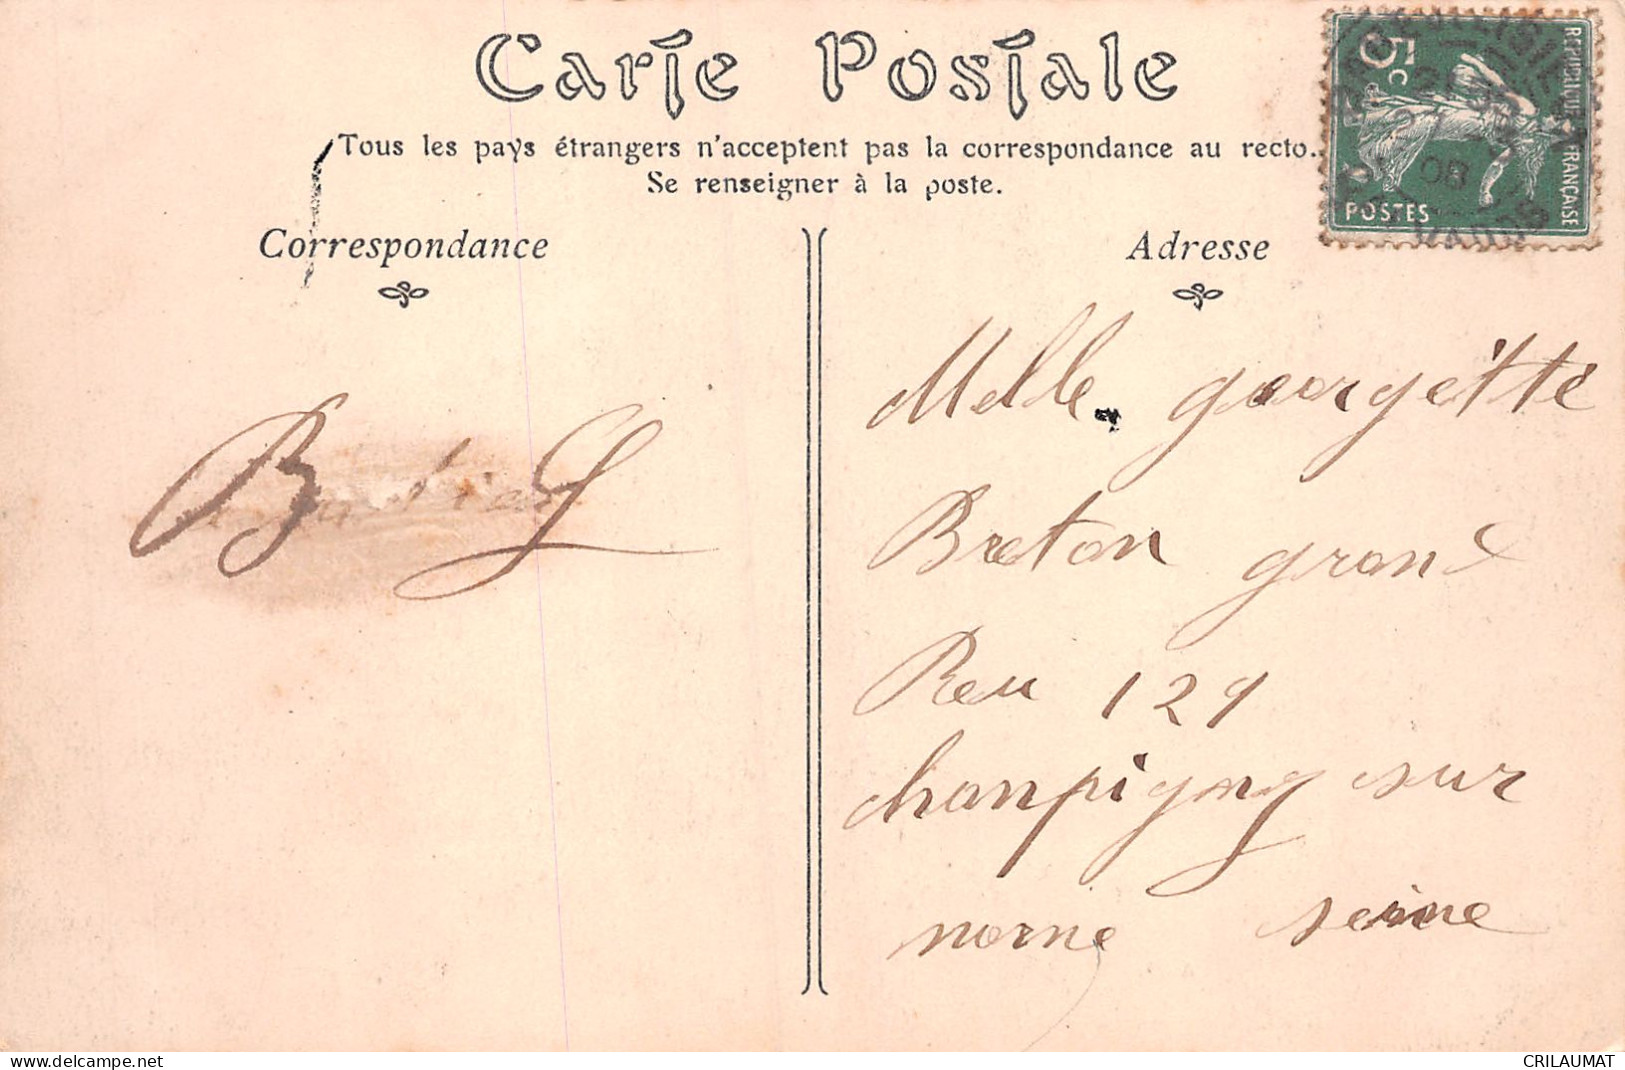 Carte Postale
Tous les pays étrangers n'acceptent pas la correspondance au recto.
Se renseigner à la poste.
Correspondance
Adresse
REPUBLIQUE FRANÇAISE
5c
POSTES
08
B G
Melle georgette
Breton grand
Reu 129
chanpigny sur
norne seine
www.delcampe.net
CRILAUMAT